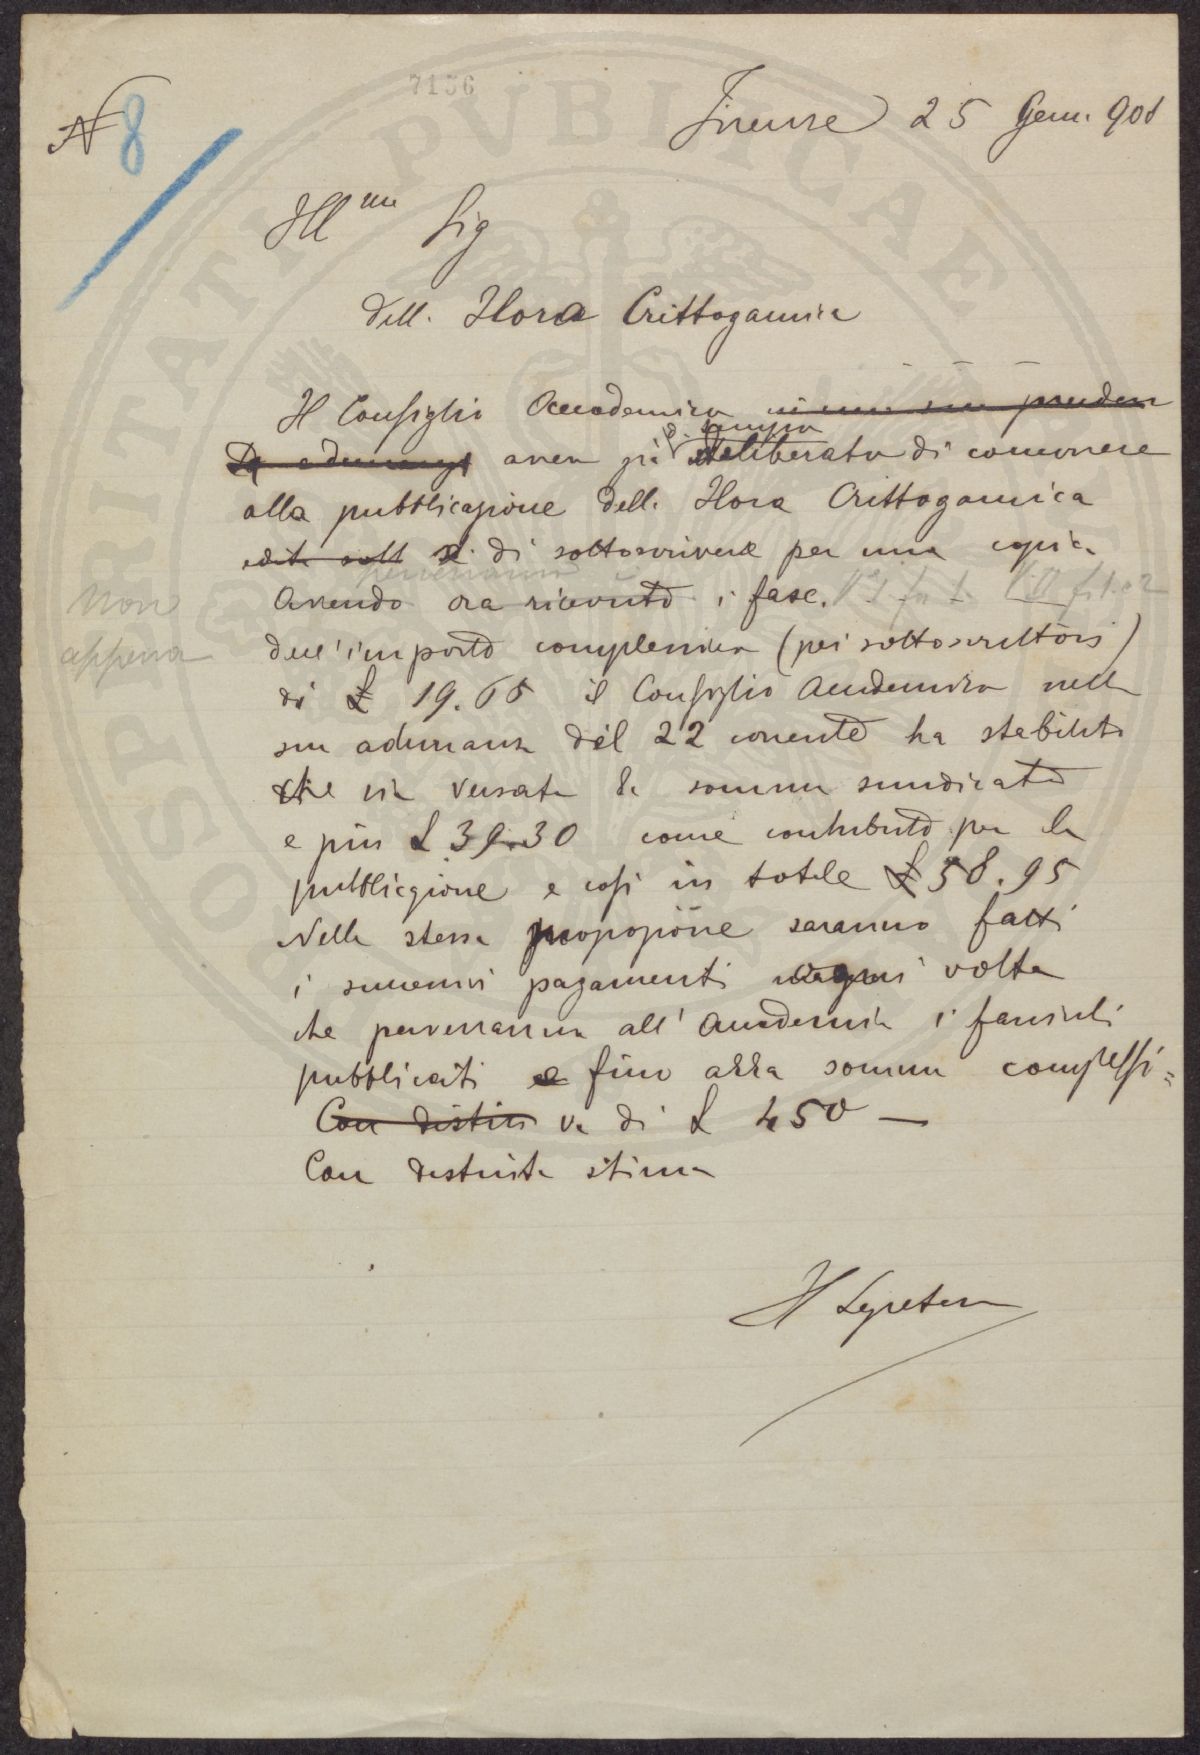 7156
N 8
Firenze 25 Genn. 908
Ill mo Sig
Dell. Flora Crittogamica
Il Consiglio Accademico in una sua preceden
adunanza aveva già deliberato di concorrere
alla pubblicazione della Flora Crittogamica
edita sott e di sottoscrivere per una copia.
Avendo ora ricevuto i fasc.
non
appena
perverranno
dell'importo complessivo (pei sottoscrittori)
di £ 19.65 il Consiglio Accademico nella
sua adunanza del 22 corrente ha stabilito
che sia versata la somma suindicata
e più £ 39.30 come contributo per la
pubblicazione e così in totale £ 58.95
Nella stessa proporzione saranno fatti
i successivi pagamenti ogni volta
che perverranno all'Accademia i fascicoli
pubblicati e fino alla somma complessi=
Con distin va di £ 450 —
Con distinta stima
Il Segretario
SPPERITATI PVBLICAE